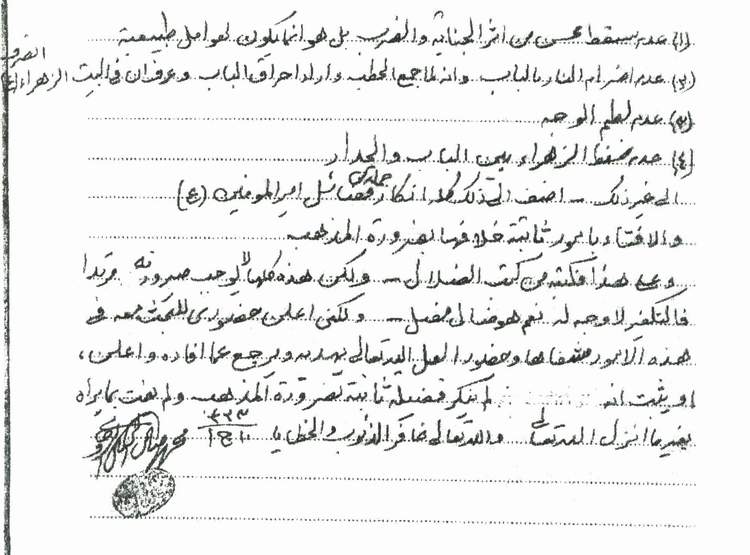 (١) عدم سقط محسن من اثر الجناية والضرب بل هو انما يكون لعوامل طبيعية
(٢) عدم اضرام النار بالباب وانه لما جمع الحطب واراد احراق الباب وعرف ان في البيت الزهراء (ع) انصرف
(٣) عدم لطم الوجه
(٤) عدم ضغط الزهراء بين الباب والجدار
الى غير ذلك - اضف الى ذلك كله انكار جملة من فضائل امير المومنين (ع)
والافتاء بامور ثابتة خلافها بضرورة المذهب
وعلى هذا فكتبه من كتب الضلال - ولكن هذه كلها لا توجب صيرورته مرتدا
فالتكفير لا وجه له نعم هو ضال مضل - ولكنى اعلن حضورى للبحث معه فى
هذه الامور شفاها وحضورا لعل الله تعالى يهديه ويرجع عما افاده واعلن،
او يثبت انه لم ينكر فضيلة ثابتة بضرورة المذهب ولم يفت بما يراه
بغير ما انزل الله تعالى والله تعالى غافر الذنوب والخطايا